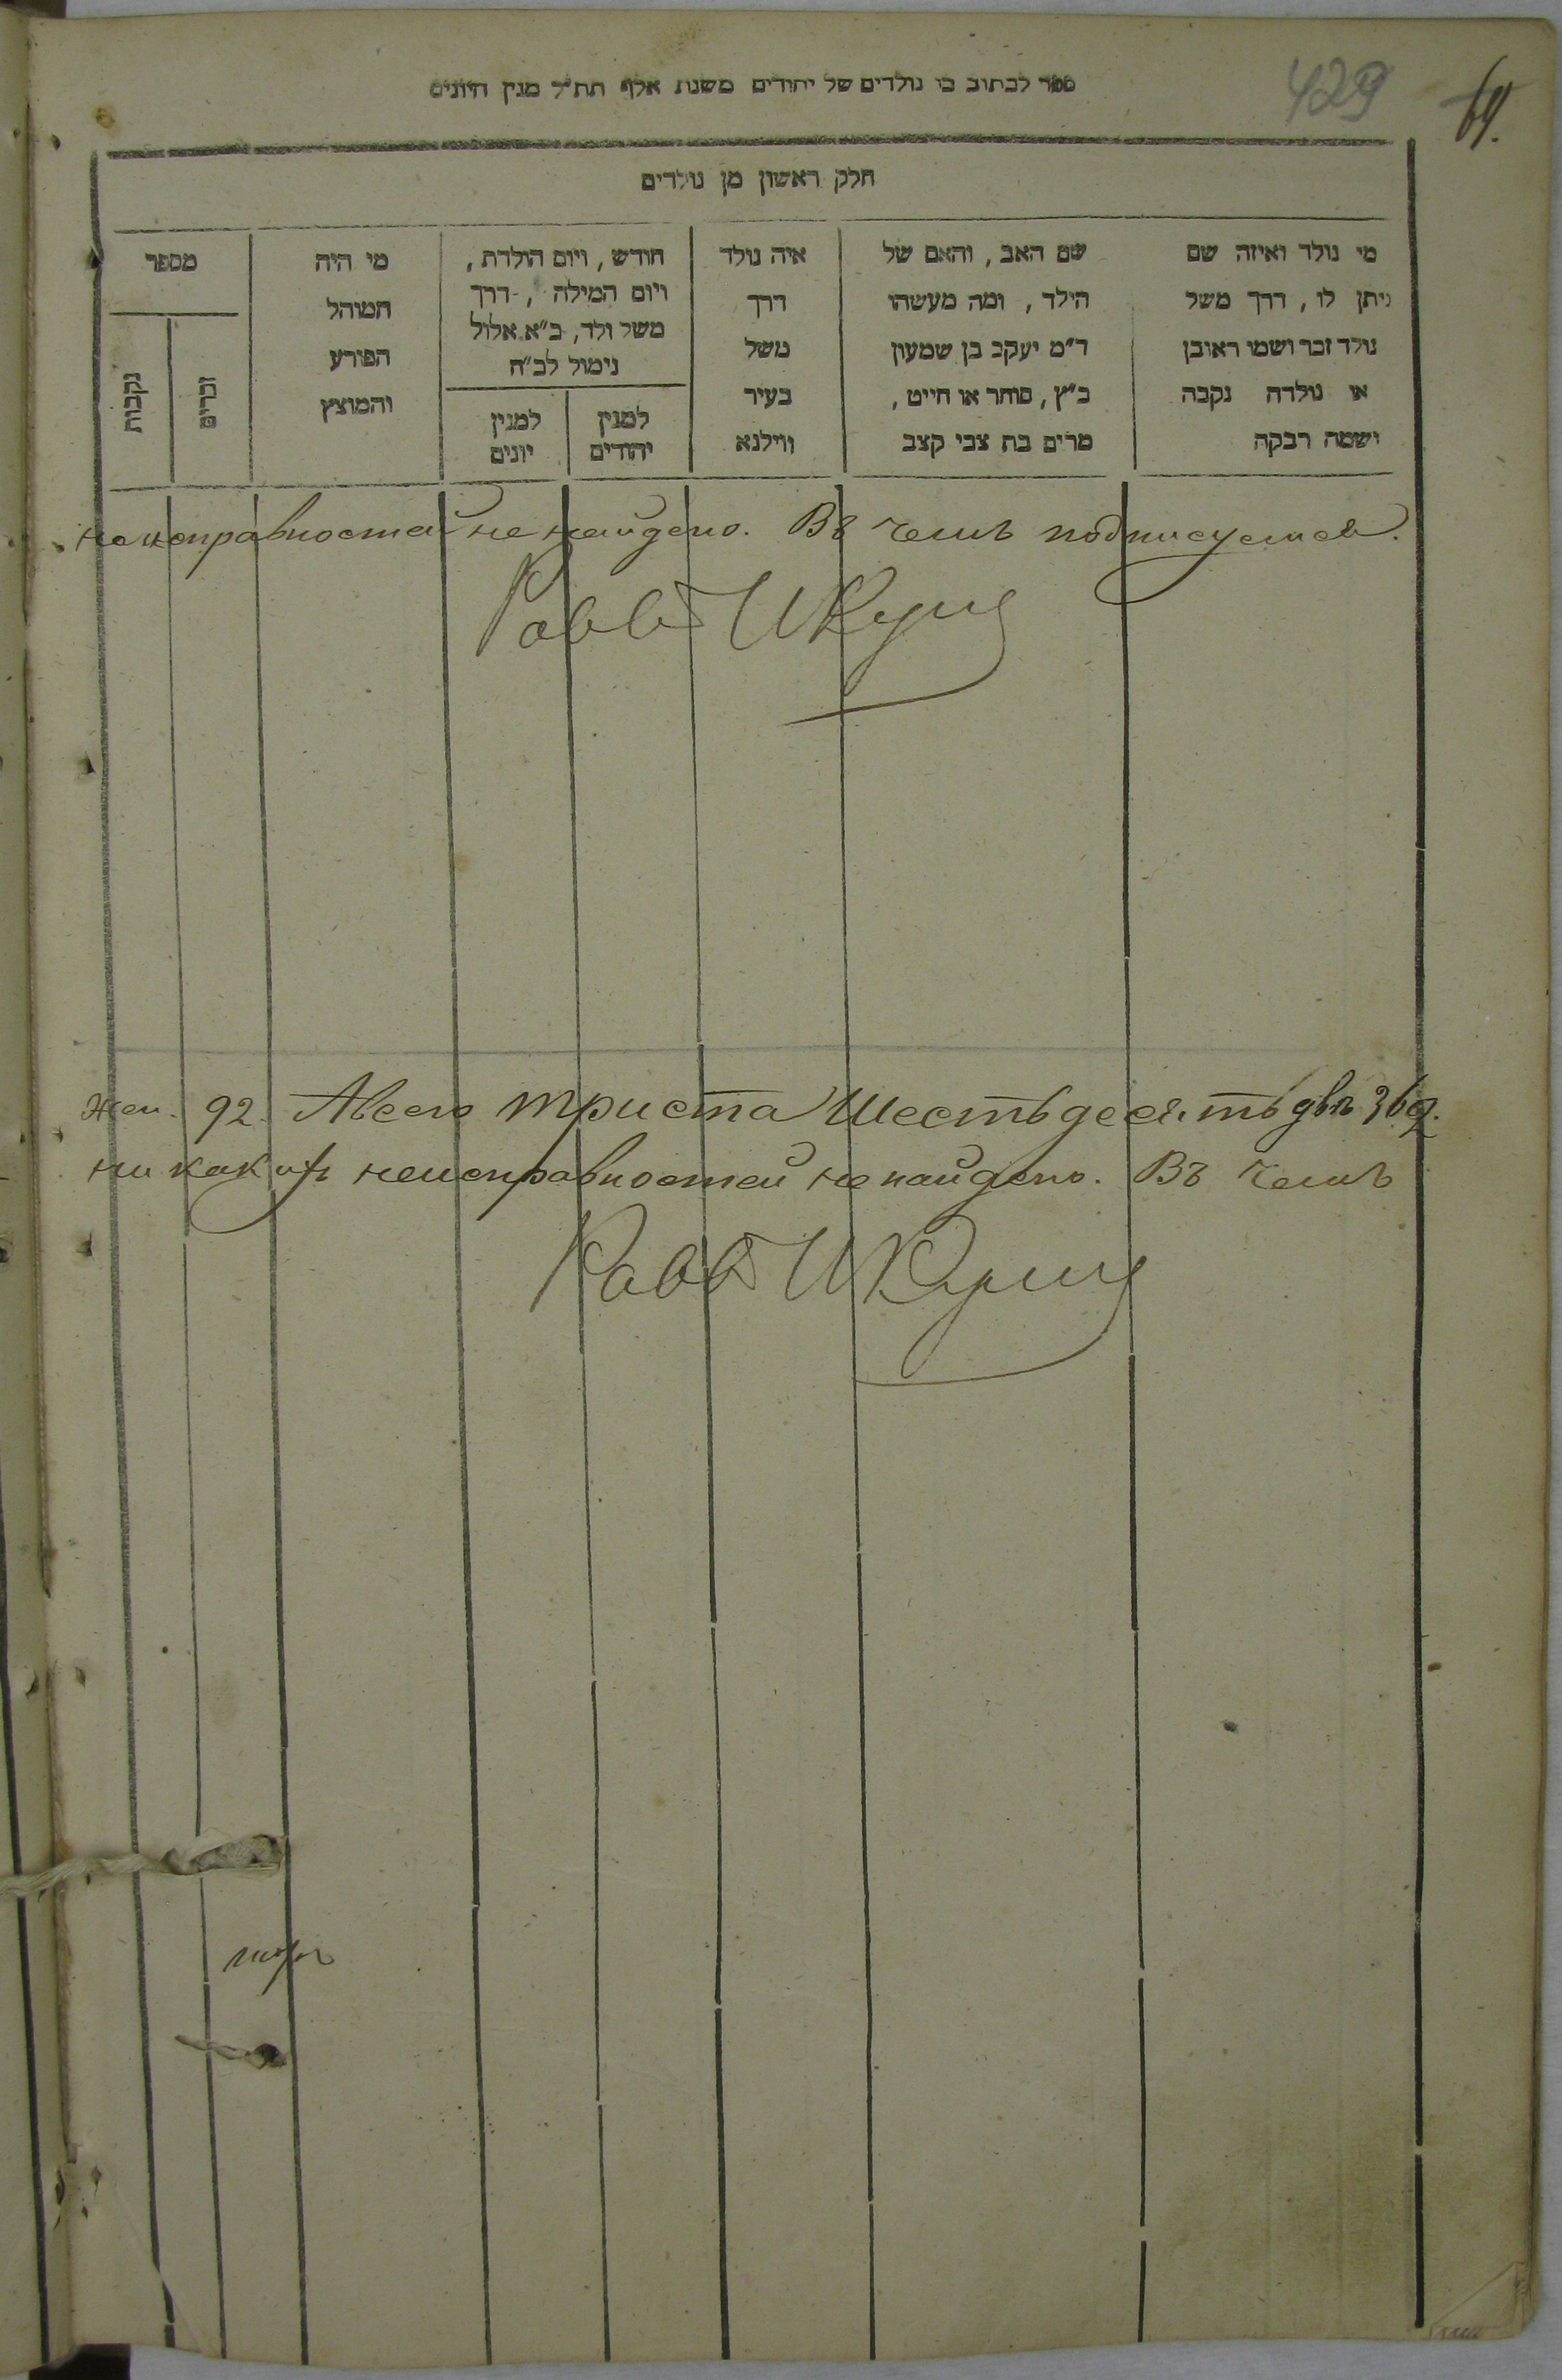 ספר לכתוב בו נולדים של יהודים משנת אלף תת״ל מנין היונים
429
69.
חלק ראשון מן נולדים
מי נולד ואיזה שם
ניתן לו, דרך משל
נולד זכר ושמו ראובן
או נולדה נקבה
ושמה רבקה
שם האב, והאם של
הילד, ומה מעשהו
ד״מ יעקב בן שמעון
כ״ץ, סוחר או חייט,
מרים בת צבי קצב
איה נולד
דרך
משל
בעיר
ווילנא
חודש, ויום הולדת,
ויום המילה, דרך
משל ולד, כ״א אלול
נימול לכ״ח
למנין
יהודים
למנין
יונים
מי היה
המוהל
הפורע
והמוצץ
מספר
זכרים
נקבות
неисправностей не найдено. Въ чемъ подписуемся.
Равв
Жен. 92. Авсего триста Шестьдесять двѣ 362.
никакихъ неисправностей не найдено. Въ чемъ
Равв